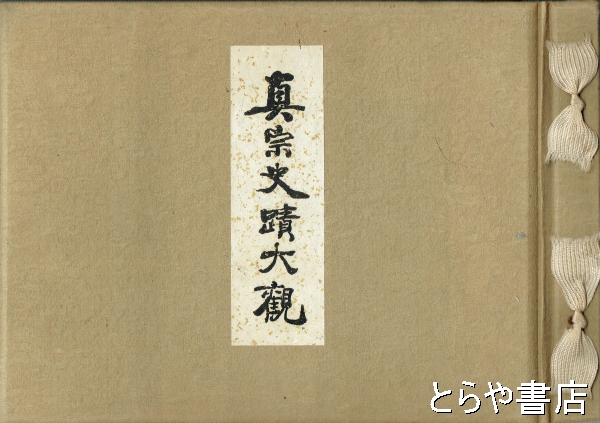 真宗史蹟大觀
とらや書店